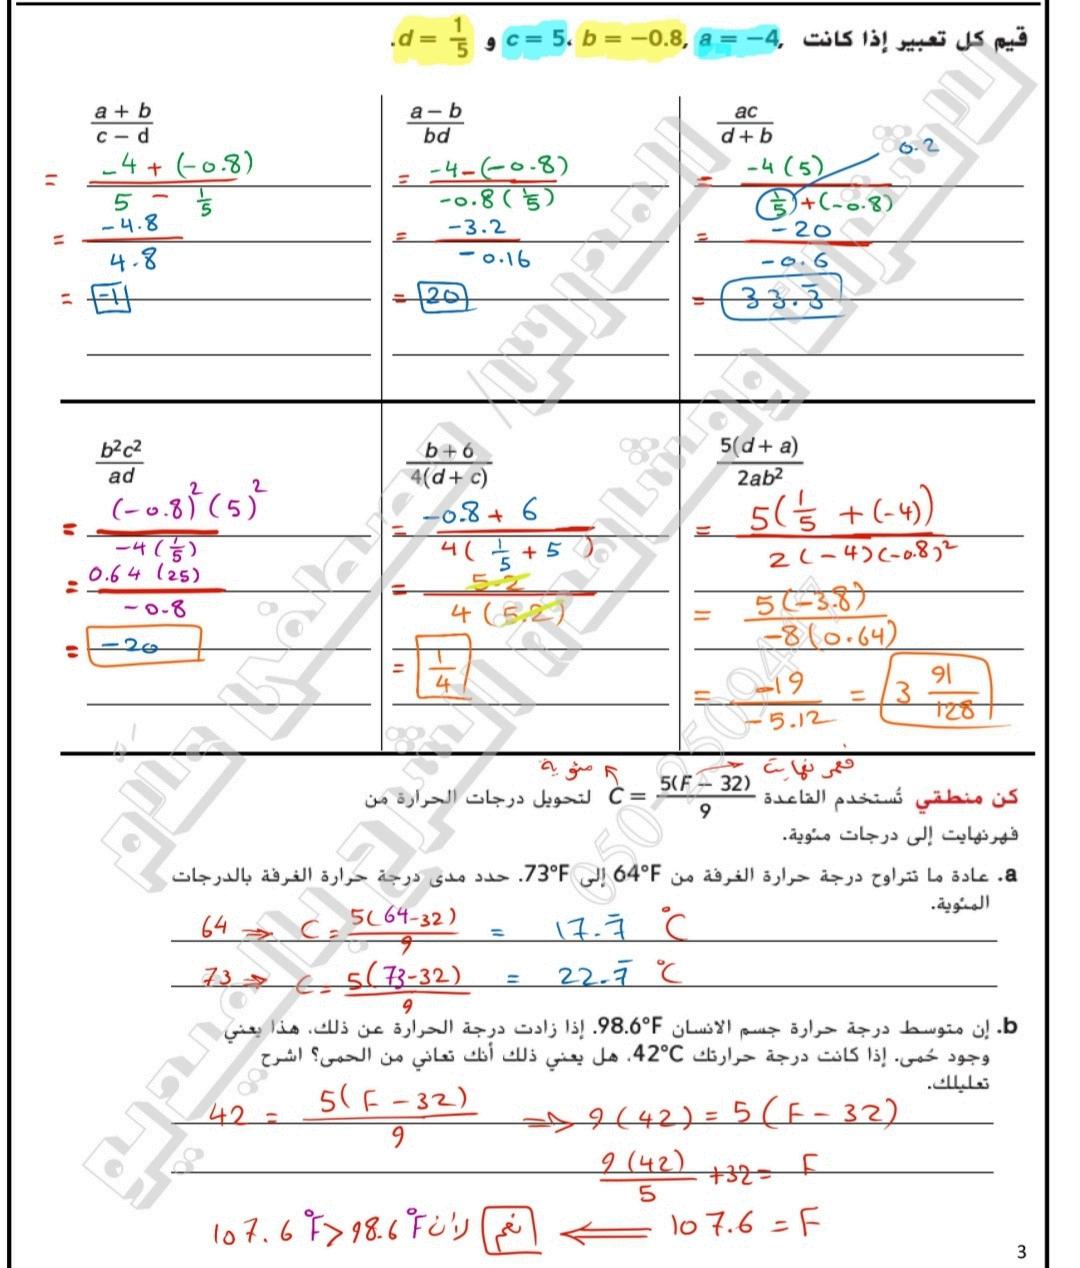 قيم كل تعبير إذا كانت a = −4, b = −0.8, c = 5، و d = 1/5.
(a + b)/(c − d)
= (-4 + (-0.8))/(5 - 1/5)
= -4.8/4.8
= -1
(a − b)/(bd)
= (-4-(-0.8))/(-0.8(1/5))
= -3.2/-0.16
= 20
ac/(d + b)
0.2
= -4(5)/(1/5+(-0.8))
= -20/-0.6
= 33.3̄
b²c²/ad
= (-0.8)²(5)²/(-4(1/5))
= 0.64 (25)/-0.8
= -20
(b + 6)/(4(d + c))
= (-0.8 + 6)/(4(1/5 + 5))
= 5.2/(4(5.2))
= 1/4
5(d + a)/(2ab²)
= 5(1/5 + (-4))/(2(-4)(-0.8)²)
= 5(-3.8)/(-8(0.64))
= -19/-5.12 = 3 91/128
مئوية
فهرنهايت
كن منطقي تُستخدم القاعدة C = 5(F − 32)/9 لتحويل درجات الحرارة من
فهرنهايت إلى درجات مئوية.
a. عادة ما تتراوح درجة حرارة الغرفة من 64°F إلى 73°F. حدد مدى درجة حرارة الغرفة بالدرجات
المئوية.
64 ⇒ C = 5(64-32)/9 = 17.7̄ °C
73 ⇒ C = 5(73-32)/9 = 22.7̄ °C
b. إن متوسط درجة حرارة جسم الانسان 98.6°F. إذا زادت درجة الحرارة عن ذلك، هذا يعني
وجود حُمى. إذا كانت درجة حرارتك 42°C، هل يعني ذلك أنك تعاني من الحمى؟ اشرح
تعليلك.
42 = 5(F - 32)/9 ⇒ 9(42) = 5(F - 32)
9(42)/5 +32 = F
107.6 = F ⟸ نعم لأن 107.6 °F > 98.6 °F
3
050-2509447